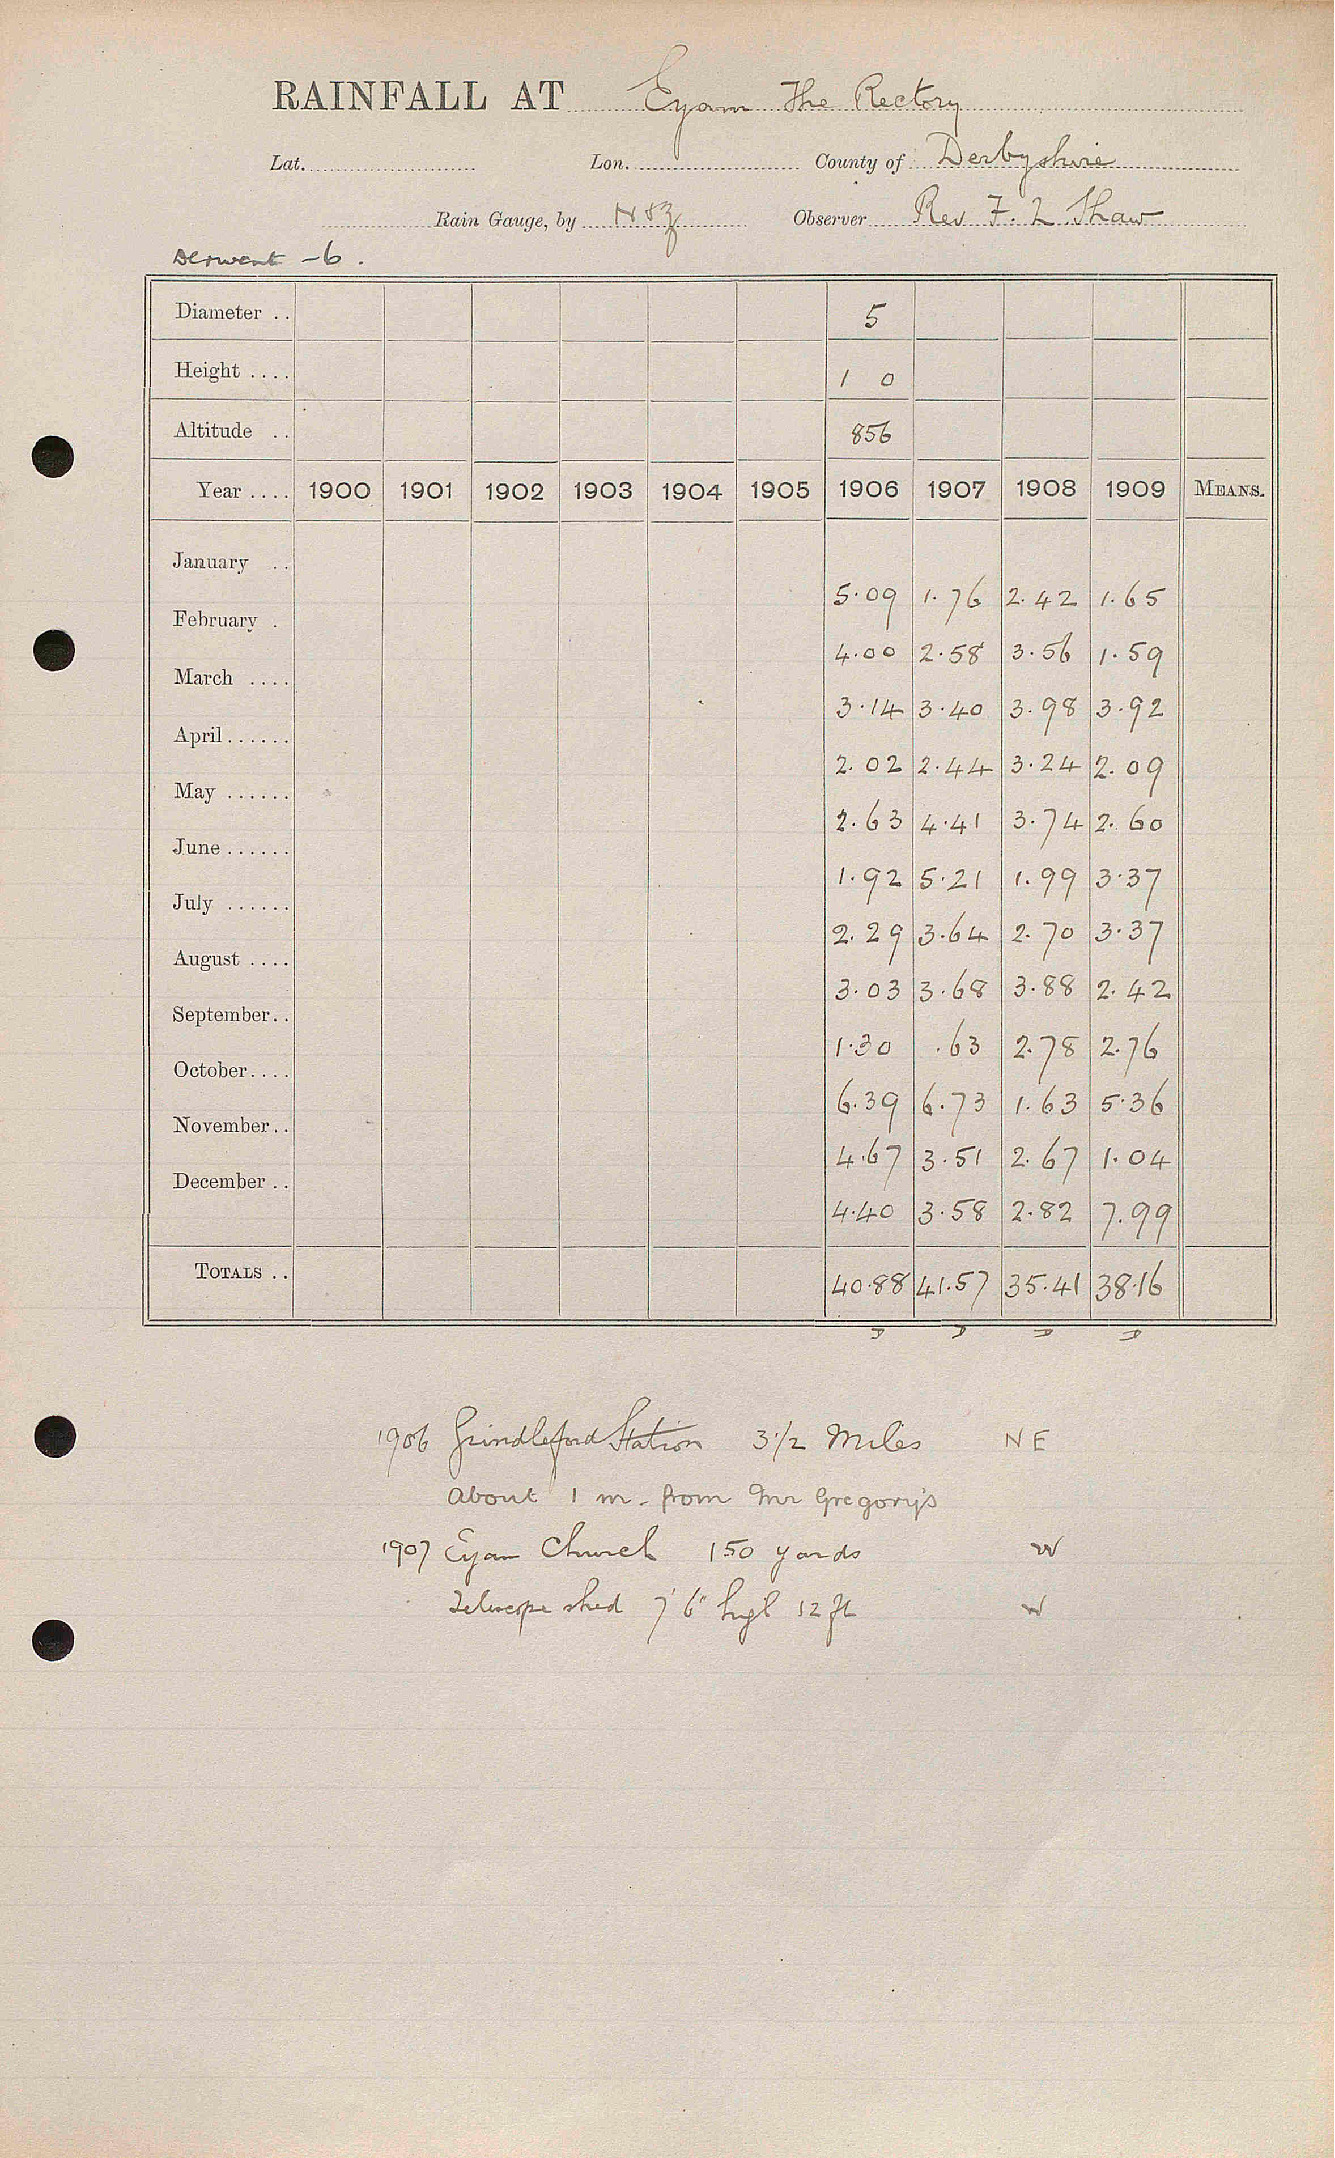 RAINFALL AT Eyam The Rectory
Lat. Lon. County of Derbyshire
Rain Gauge, by N & Z Observer Rev F. L. Shaw
Derwent - 6.
Diameter .. 5
Height .... 1 0
Altitude .. 856
Year .... 1900 1901 1902 1903 1904 1905 1906 1907 1908 1909 MEANS.
January .. 5.09 1.76 2.42 1.65
February . 4.00 2.58 3.56 1.59
March .... 3.14 3.40 3.98 3.92
April...... 2.02 2.44 3.24 2.09
May ...... 2.63 4.41 3.74 2.60
June...... 1.92 5.21 1.99 3.37
July ...... 2.29 3.64 2.70 3.37
August .... 3.03 3.68 3.88 2.42
September.. 1.30 .63 2.78 2.76
October.... 6.39 6.73 1.63 5.36
November.. 4.67 3.51 2.67 1.04
December .. 4.40 3.58 2.82 7.99
TOTALS .. 40.88 41.57 35.41 38.16
D D D D
1906 Grindleford Station 3 1/2 Miles NE
About 1 m. from Mr Gregory's
1907 Eyam Church 150 yards W
Telescope shed 7' 6" high 12 ft W